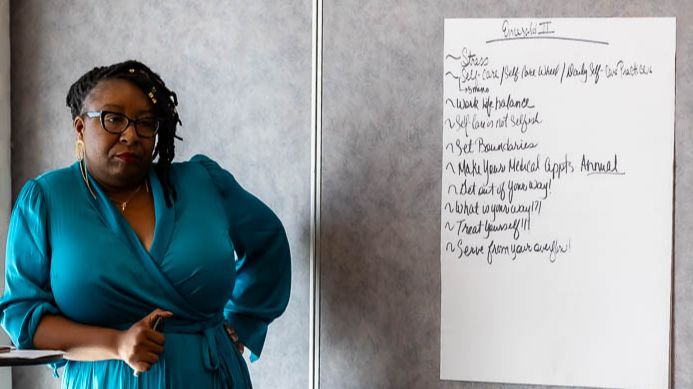 Emerald II
~ Stress
~ Self-Care/Self Care Wheel/Daily Self-Care Practices
~ Work life balance
~ Self Care is not Selfish
~ Set Boundaries
~ Make Your Medical Appts Annual
~ Get out of your way!
~ What is your way!?!
~ Treat Yourself!!!
~ Serve from your overflow!